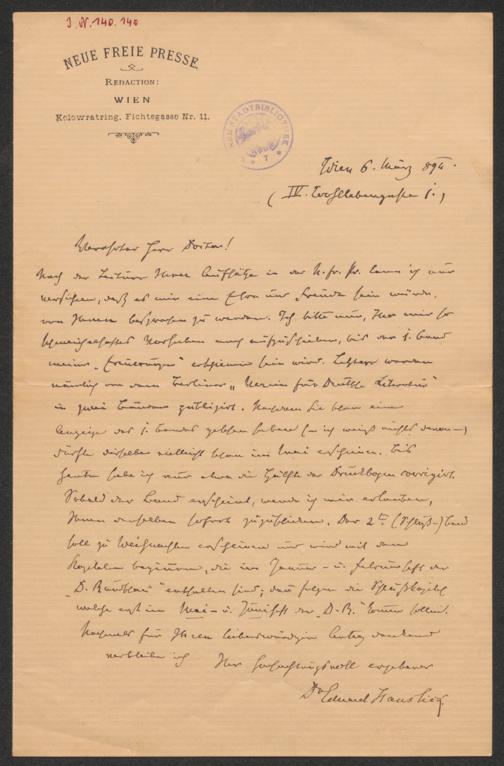 I.N. 140.140
NEUE FREIE PRESSE.
REDACTION:
WIEN
Kolowratring, Fichtegasse Nr. 11.
Wien 6. März 894.
(IV.
Verehrter Herr Doctor!
Nach der Lectüre Ihrer Aufsätze in der N. fr. Pr. kann ich nur
versichern, daß es mir eine Ehre und Freude sein würde,
von Ihnen besprochen zu werden. Ich bitte nur, Ihr mir so
schmeichelhaftes Vorhaben noch aufzuschieben, bis der 1. Band
meiner „Erinerungen" erschienen sein wird. Letztere werden
nämlich von dem Berliner „Verein für Deutsche Literatur"
in zwei Bänden publizirt. Nachdem Sie eben eine
Anzeige des 1. Bandes gelesen haben (ich weiß nichts davon)
dürfte derselbe vielleicht schon im Mai erscheinen. Bis
heute habe ich nur etwa die Hälfte der Druckbogen corrigirt.
Sobald der Band erscheint, werde ich mir erlauben,
Ihnen denselben sofort zuzuschicken. Der 2te (Schluß-) Band
soll zu Weihnachten erscheinen und wird mit den
Kapiteln beginnen, die im Januar- u. Februarheft der
„D. Rundschau" enthalten sind; dann folgen die Schlußkapitel
welche erst im Mai- u. Juniheft der „D. R." kommen sollen.
Nochmals für Ihren liebenswürdigen Antrag dankend
verbleibe ich Ihr hochachtungsvoll ergebener
Dr Eduard Hanslick